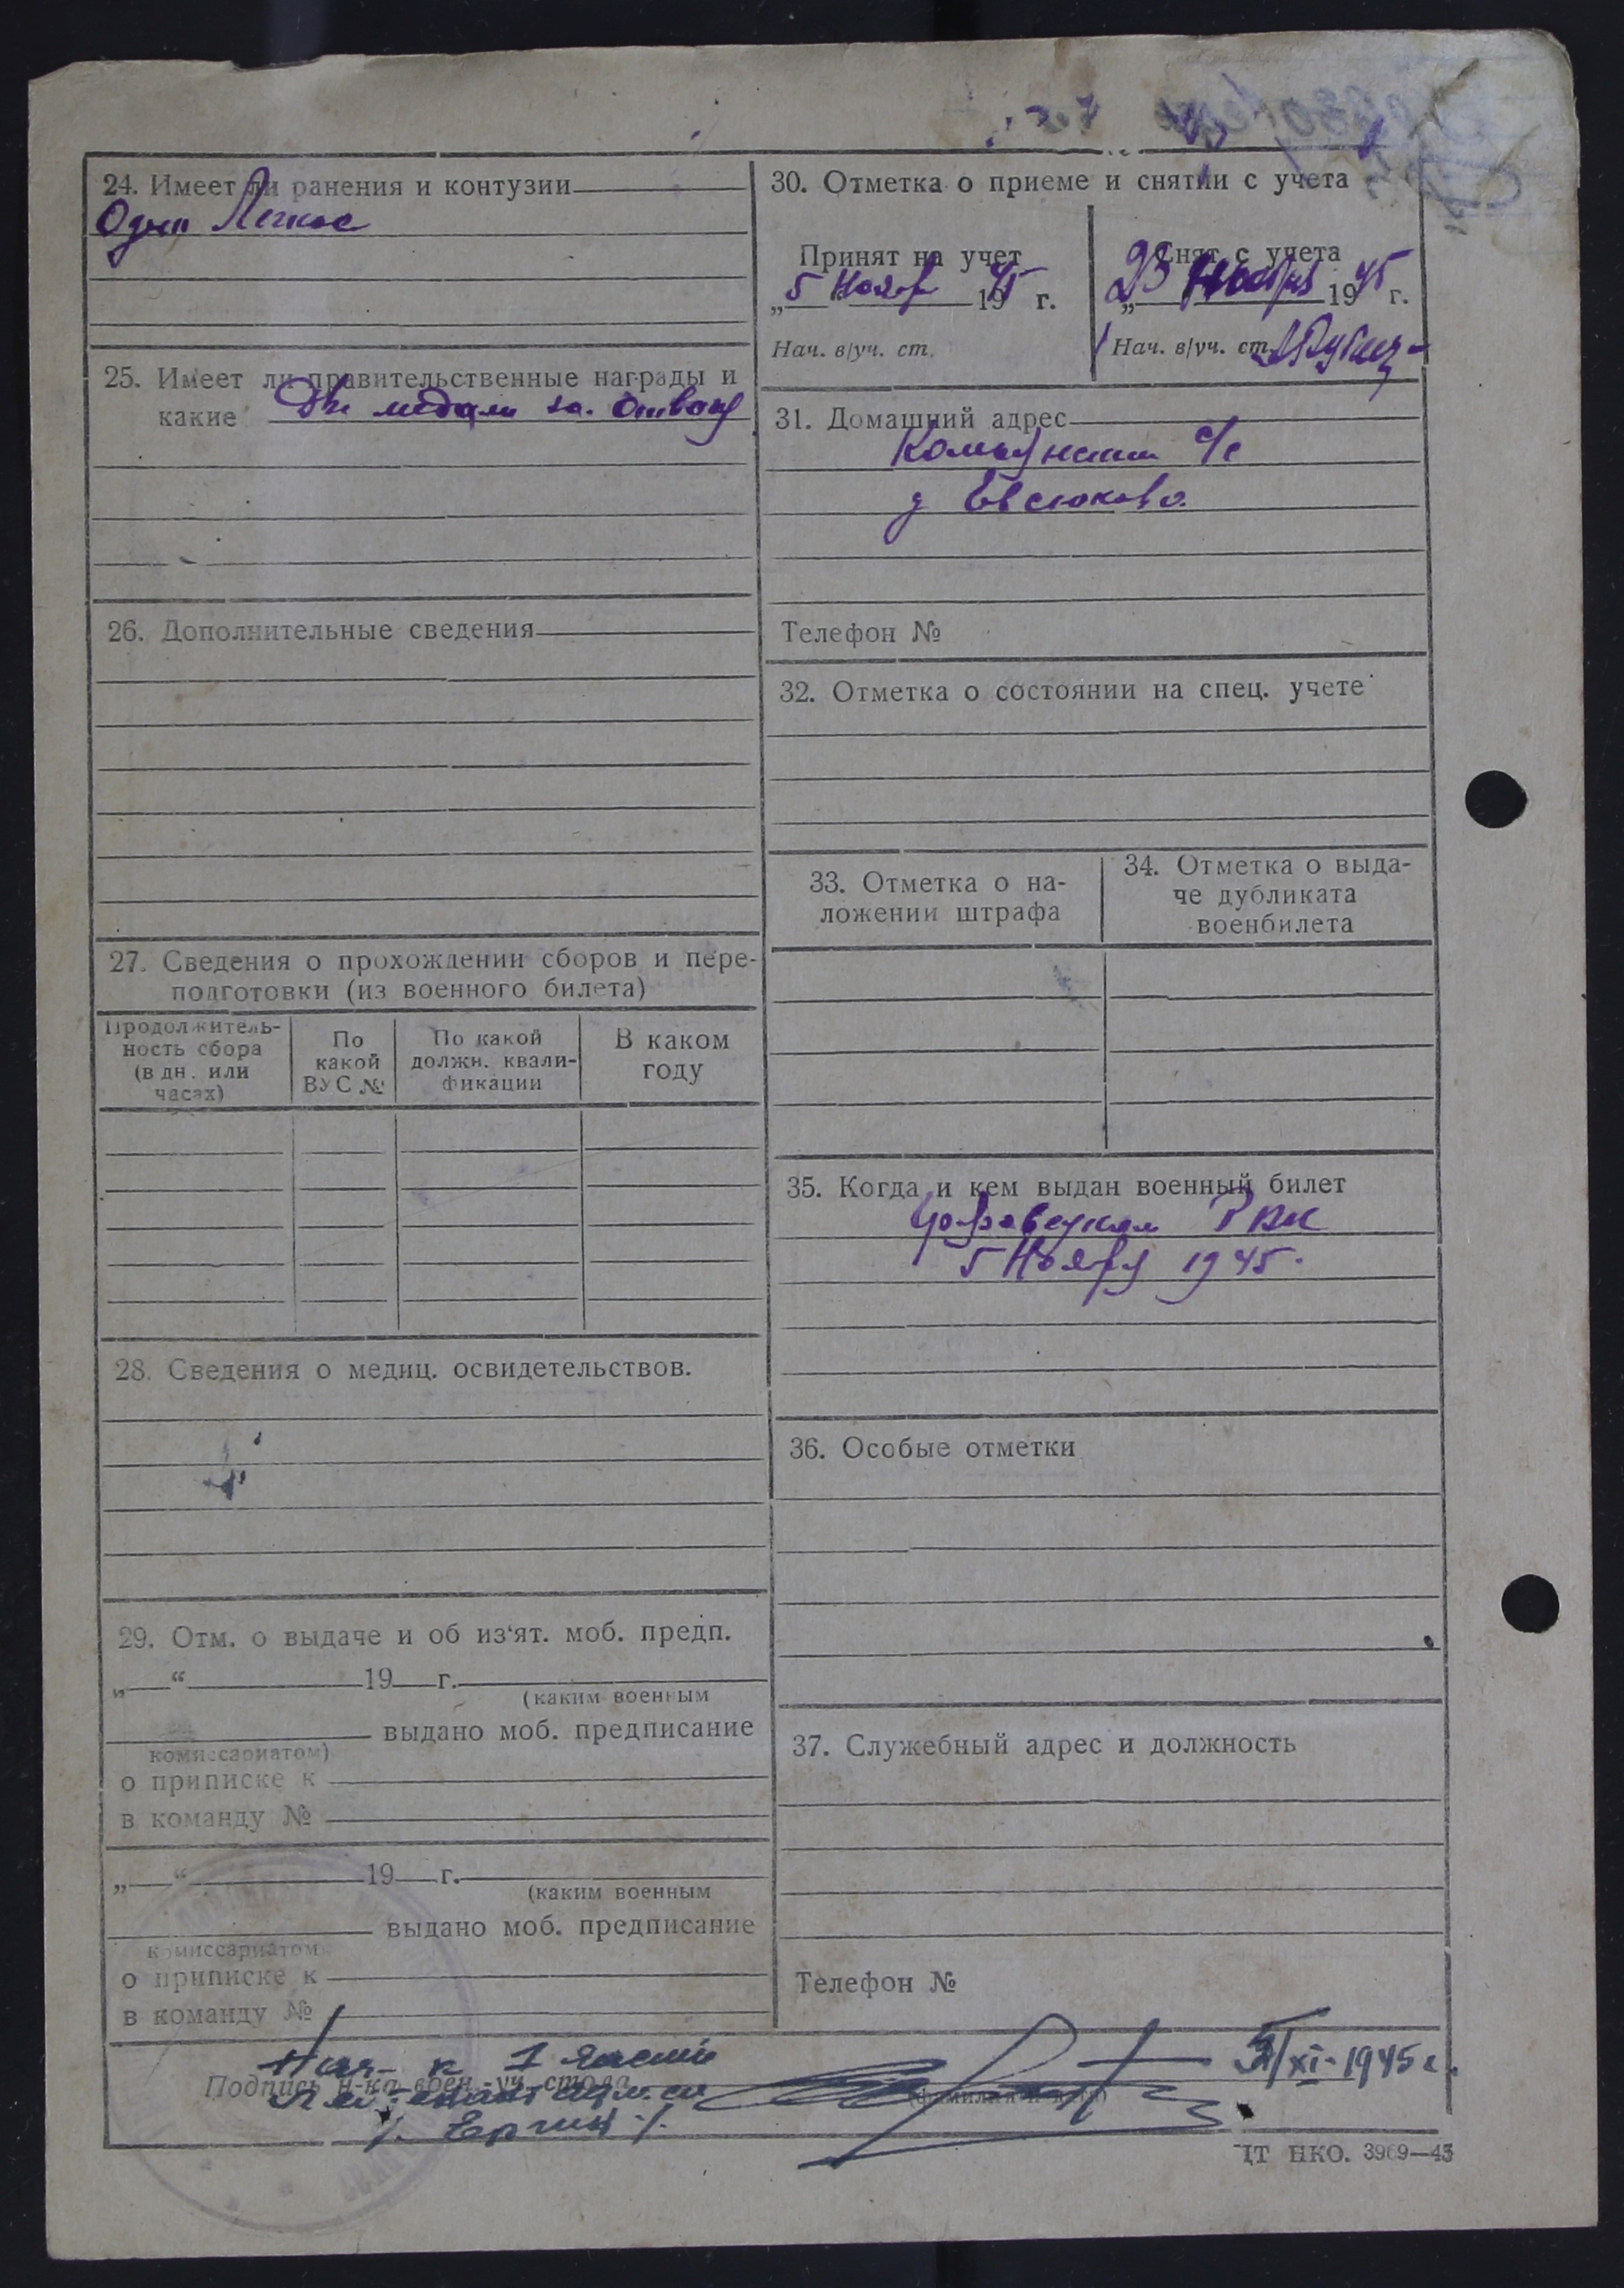 24. Имеет ли ранения и контузии
Одно Легкое
25. Имеет ли правительственные награды и
какие Две медали за. Отвагу
26. Дополнительные сведения
27. Сведения о прохождении сборов и пере-
подготовки (из военного билета)
Продолжитель-
ность сбора
(в дн. или
часах)
По
какой
ВУС №
По какой
должн. квали-
фикации
В каком
году
28. Сведения о медиц. освидетельствов.
29. Отм. о выдаче и об из‘ят. моб. предп.
„ “ 19 г.
(каким военным
выдано моб. предписание
комиссариатом)
о приписке к
в команду №
„ “ 19 г.
(каким военным
выдано моб. предписание
комиссариатом
о приписке к
в команду №
30. Отметка о приеме и снятии с учета
Принят на учет
„5 Ноябр 1945 г.
Нач. в/уч. ст.
Снят с учета
„23 Ноября 1945 г.
Нач. в/уч. ст.
31. Домашний адрес
с/с
д Евсюково.
Телефон №
32. Отметка о состоянии на спец. учете
33. Отметка о на-
ложении штрафа
34. Отметка о выда-
че дубликата
военбилета
35. Когда и кем выдан военный билет
РВК
5 Ноябр 1945.
36. Особые отметки
37. Служебный адрес и должность
Телефон №
Нач- 1 части
Подпись н-ка воен.-уч. стола
(фамилия и)
5/XI-1945 г.
ЦТ НКО. 3969—43